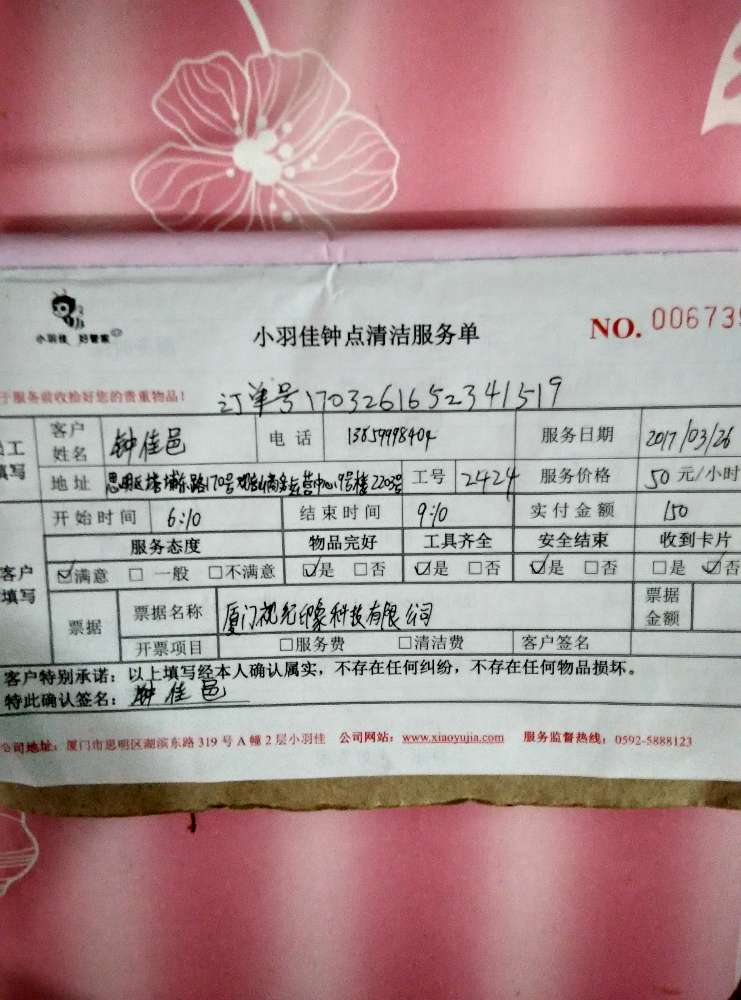 小羽佳 好管家
小羽佳钟点清洁服务单
NO. 00673
于服务前收拾好您的贵重物品！
订单号1703261652341519
工填写 客户姓名 钟佳邑 电话 13859998404 服务日期 2017/03/26
地址 思明区 东路170号 营中心9号楼2203 工号 2424 服务价格 50 元/小时
开始时间 6:10 结束时间 9:10 实付金额 150
客户填写 服务态度 物品完好 工具齐全 安全结束 收到卡片
☑满意 □一般 □不满意 ☑是 □否 ☑是 □否 ☑是 □否 □是 ☑否
票据 票据名称 厦门视光印象科技有限公司 票据金额
开票项目 □服务费 □清洁费 客户签名
客户特别承诺：以上填写经本人确认属实，不存在任何纠纷，不存在任何物品损坏。
特此确认签名：钟佳邑
公司地址：厦门市思明区湖滨东路 319 号 A 幢 2 层小羽佳 公司网站：www.xiaoyujia.com 服务监督热线：0592-5888123